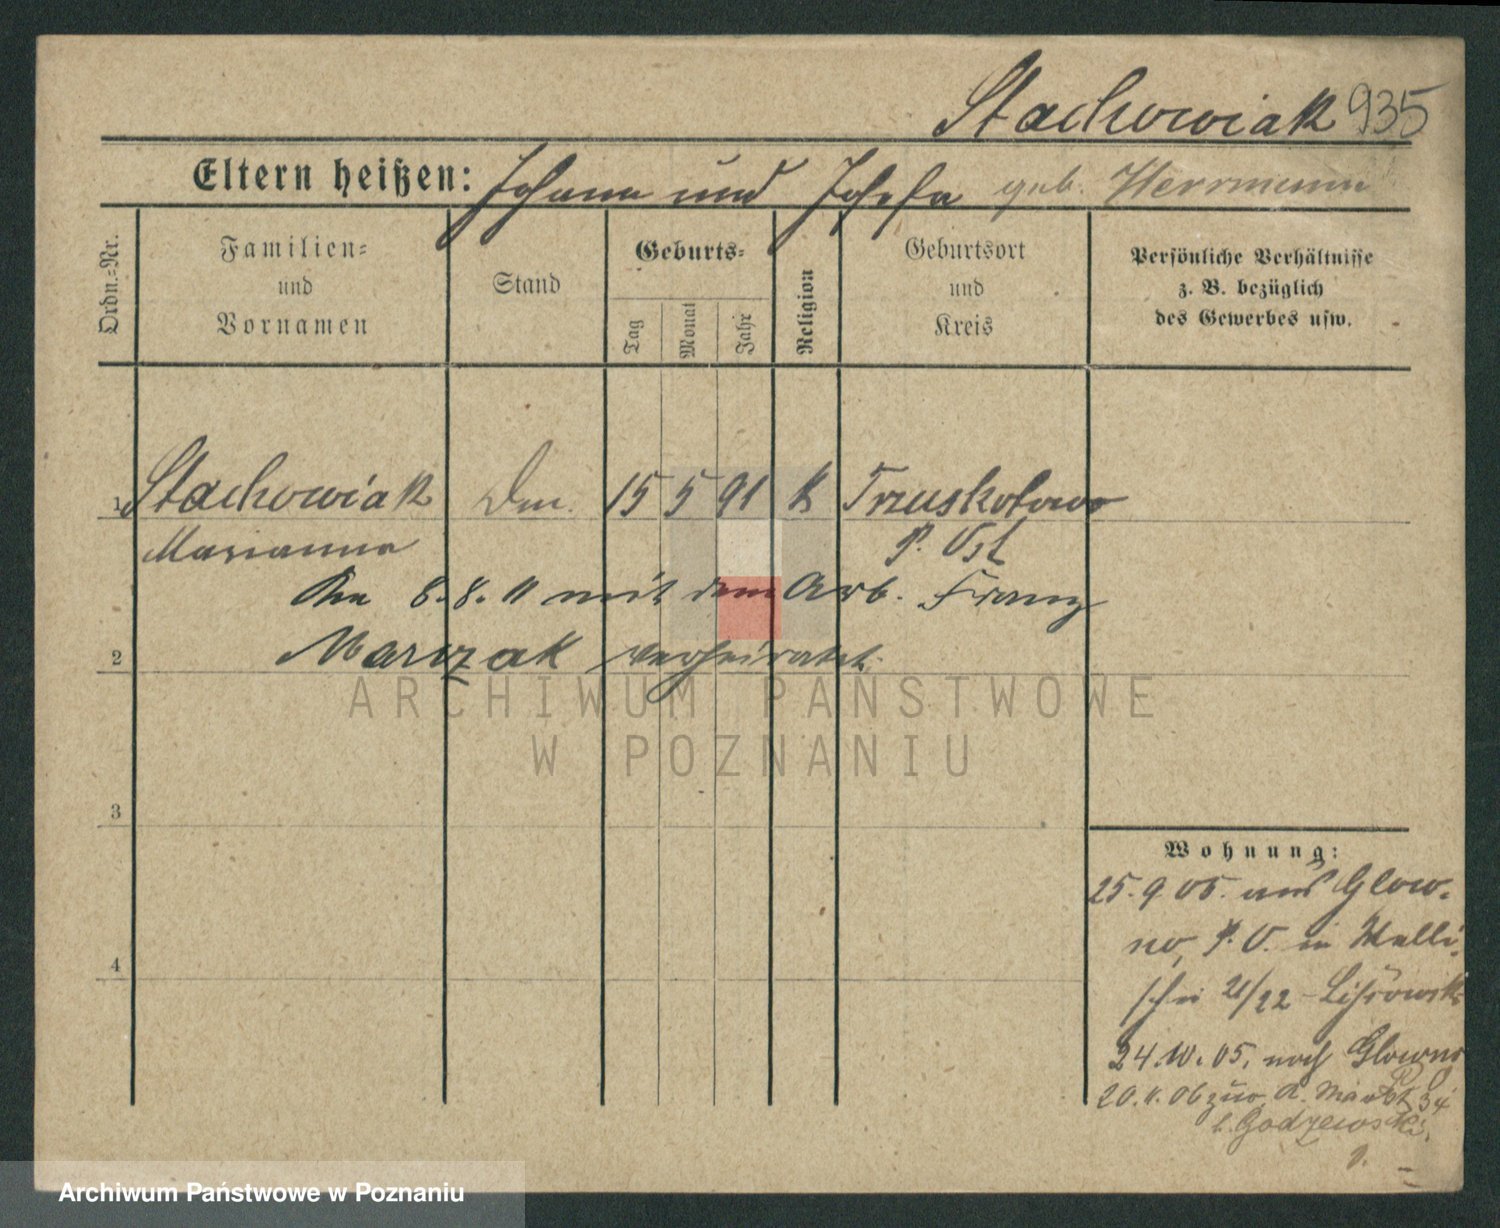 Stachowiak 935
Eltern heißen: Johann und Josefa geb. Herrmann
Ordn.-Nr.
Familien-
und
Vornamen
Stand
Geburts-
Tag
Monat
Jahr
Religion
Geburtsort
und
Kreis
Persönliche Verhältnisse
z. B. bezüglich
des Gewerbes usw.
1 Stachowiak 15 5 91 k Trzuskotowo
Marianna P. Ost
Am 8.8.11 mit dem Arb. Franz
2 Marczak verheiratet.
ARCHIWUM PAŃSTWOWE
W POZNANIU
3
4
Wohnung:
25.9.05. aus Glow-
no, P. O. in Walli-
schei 21/22
24.10.05. nach Glowno
20.11.06 zur. A. Markt 84
b. Godzewski.
Archiwum Państwowe w Poznaniu